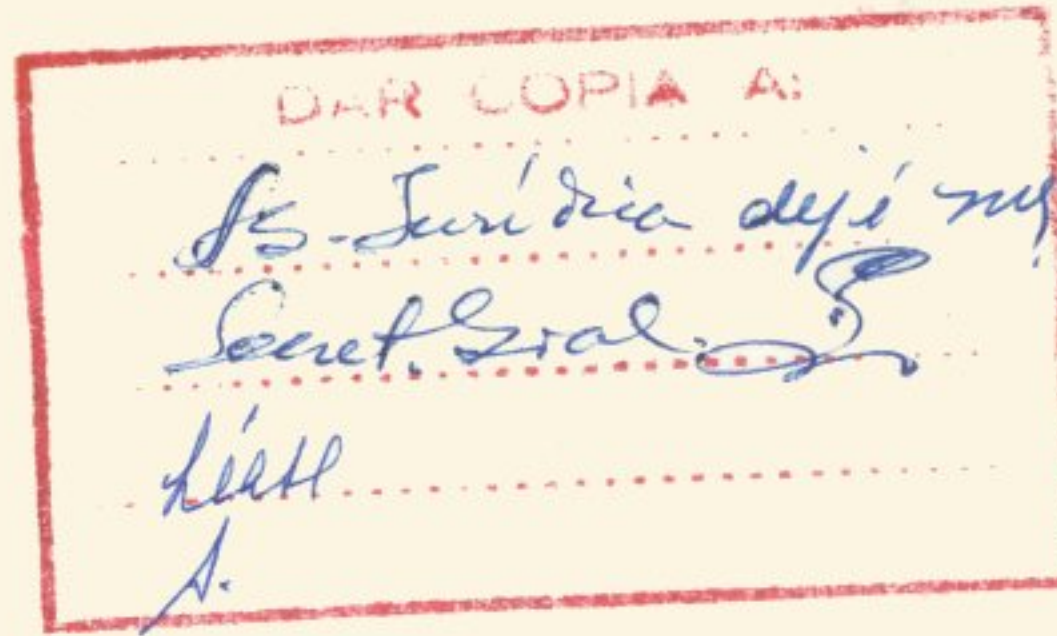 DAR COPIA A:
As-Jurídica dejé
Secret. Gral.